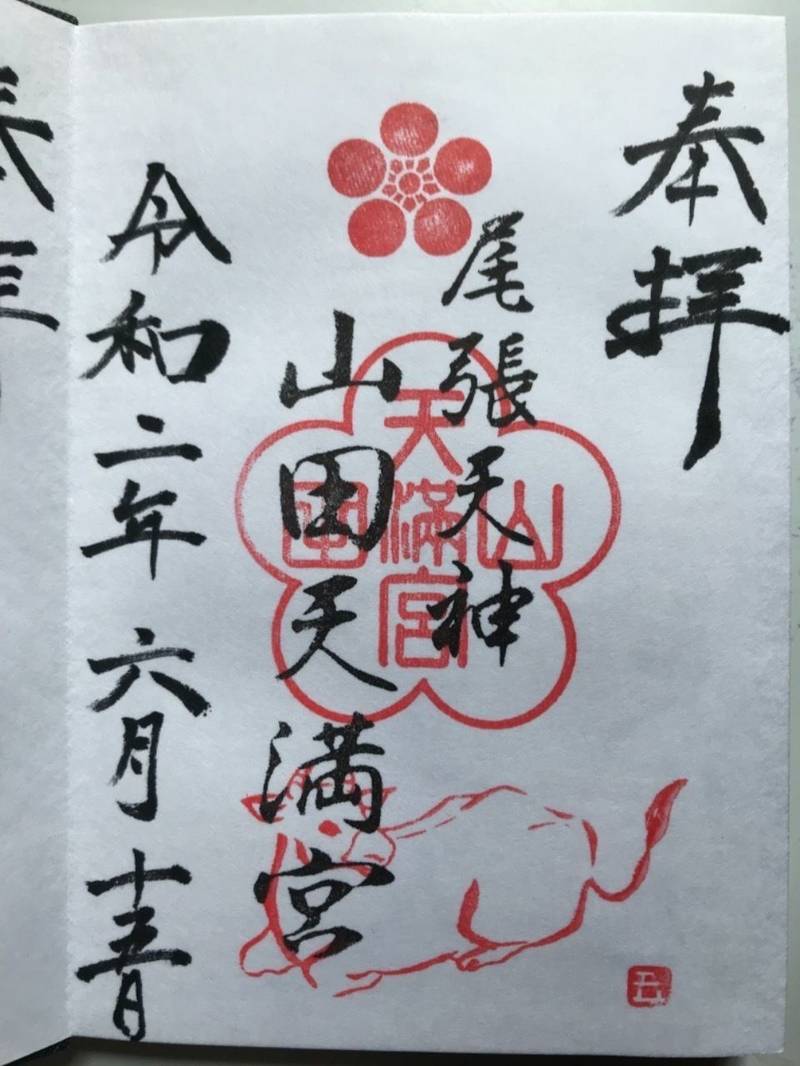 奉拝
尾張天神
山田天満宮
令和二年六月十五日
山田
天満宮
丑